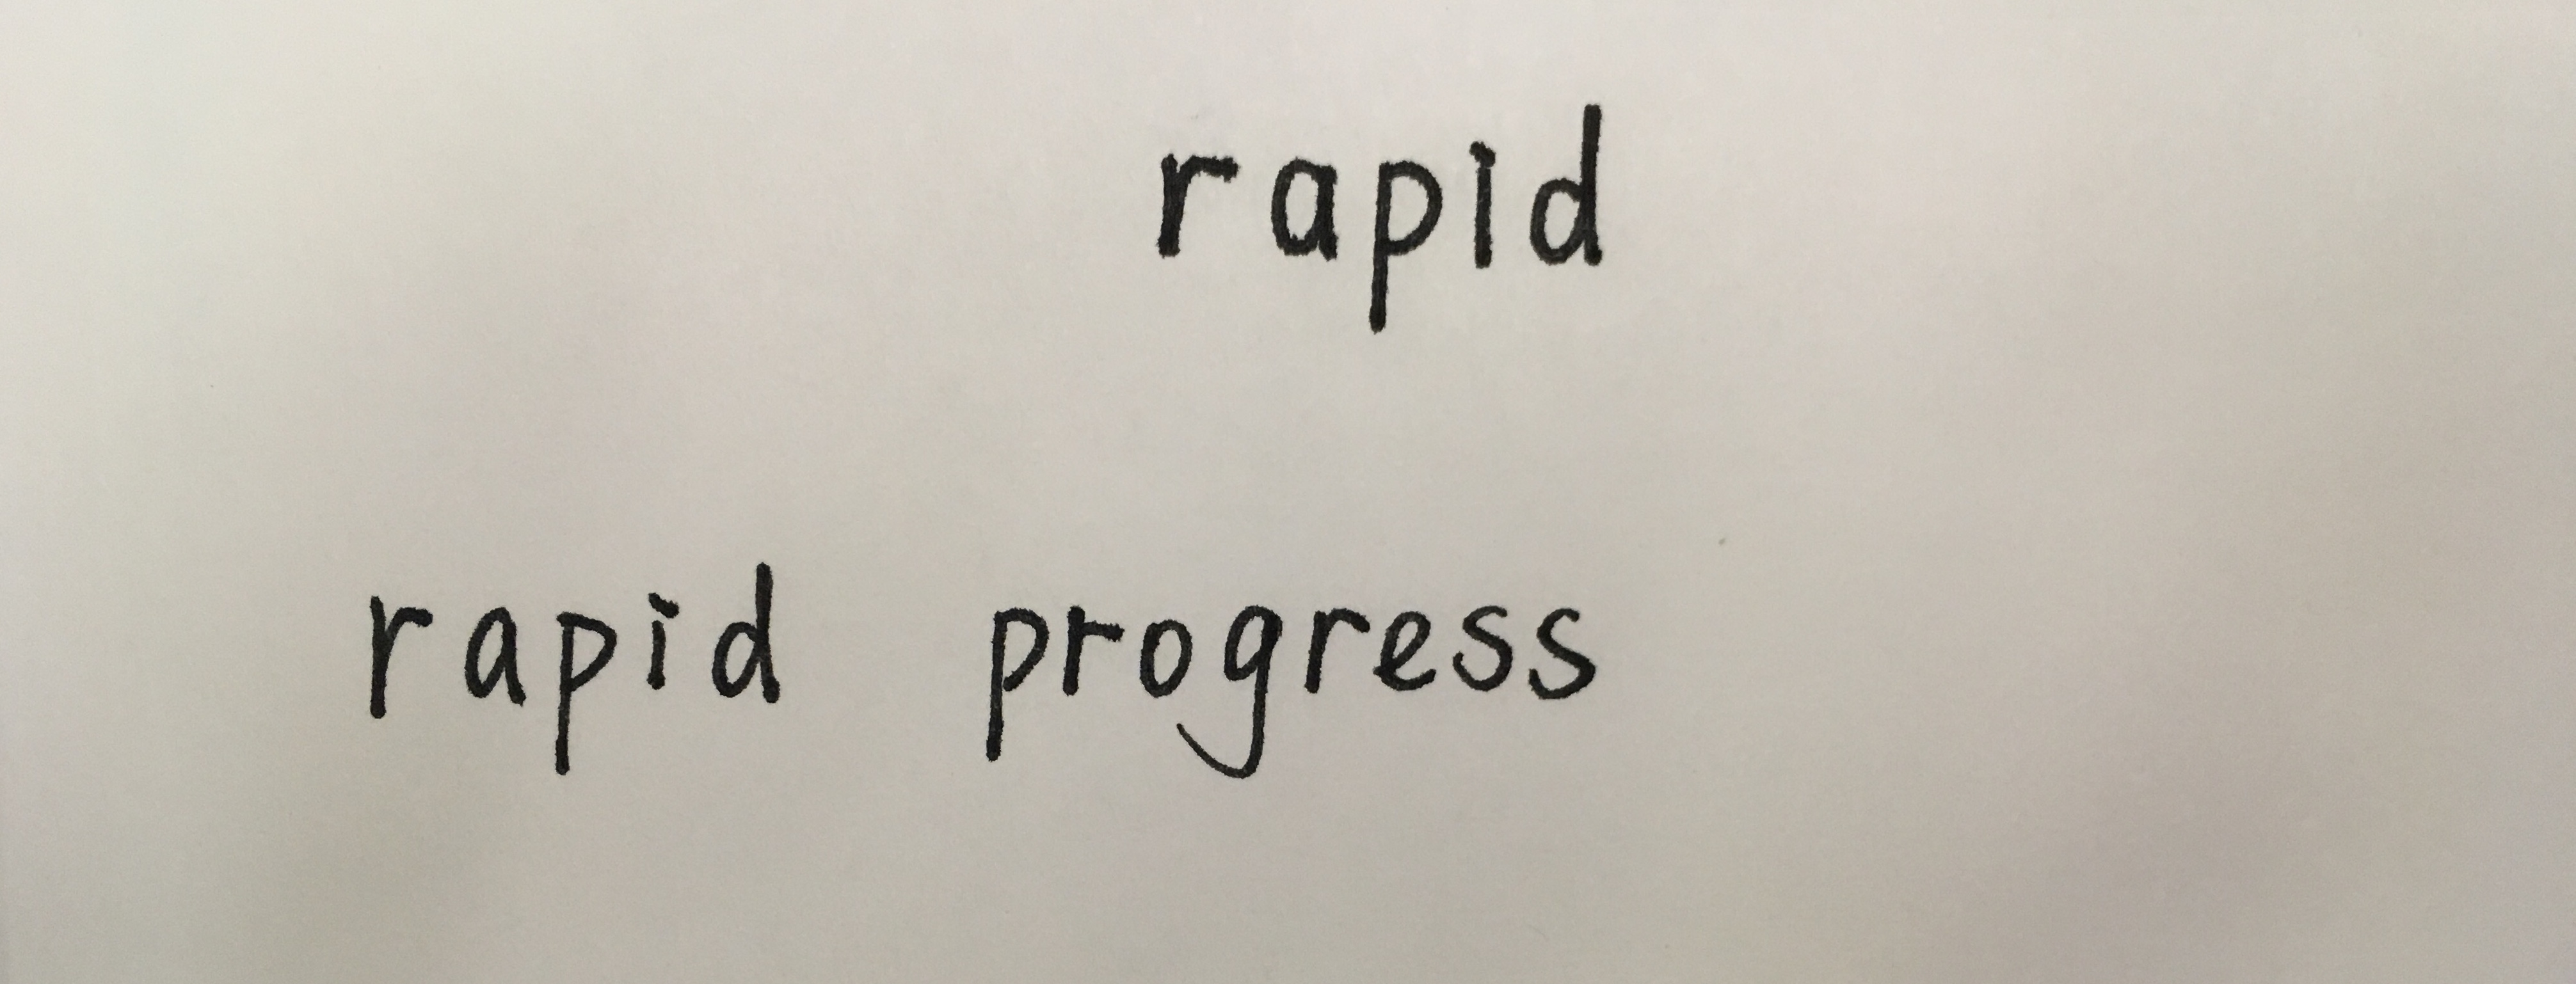 rapid
rapid progress